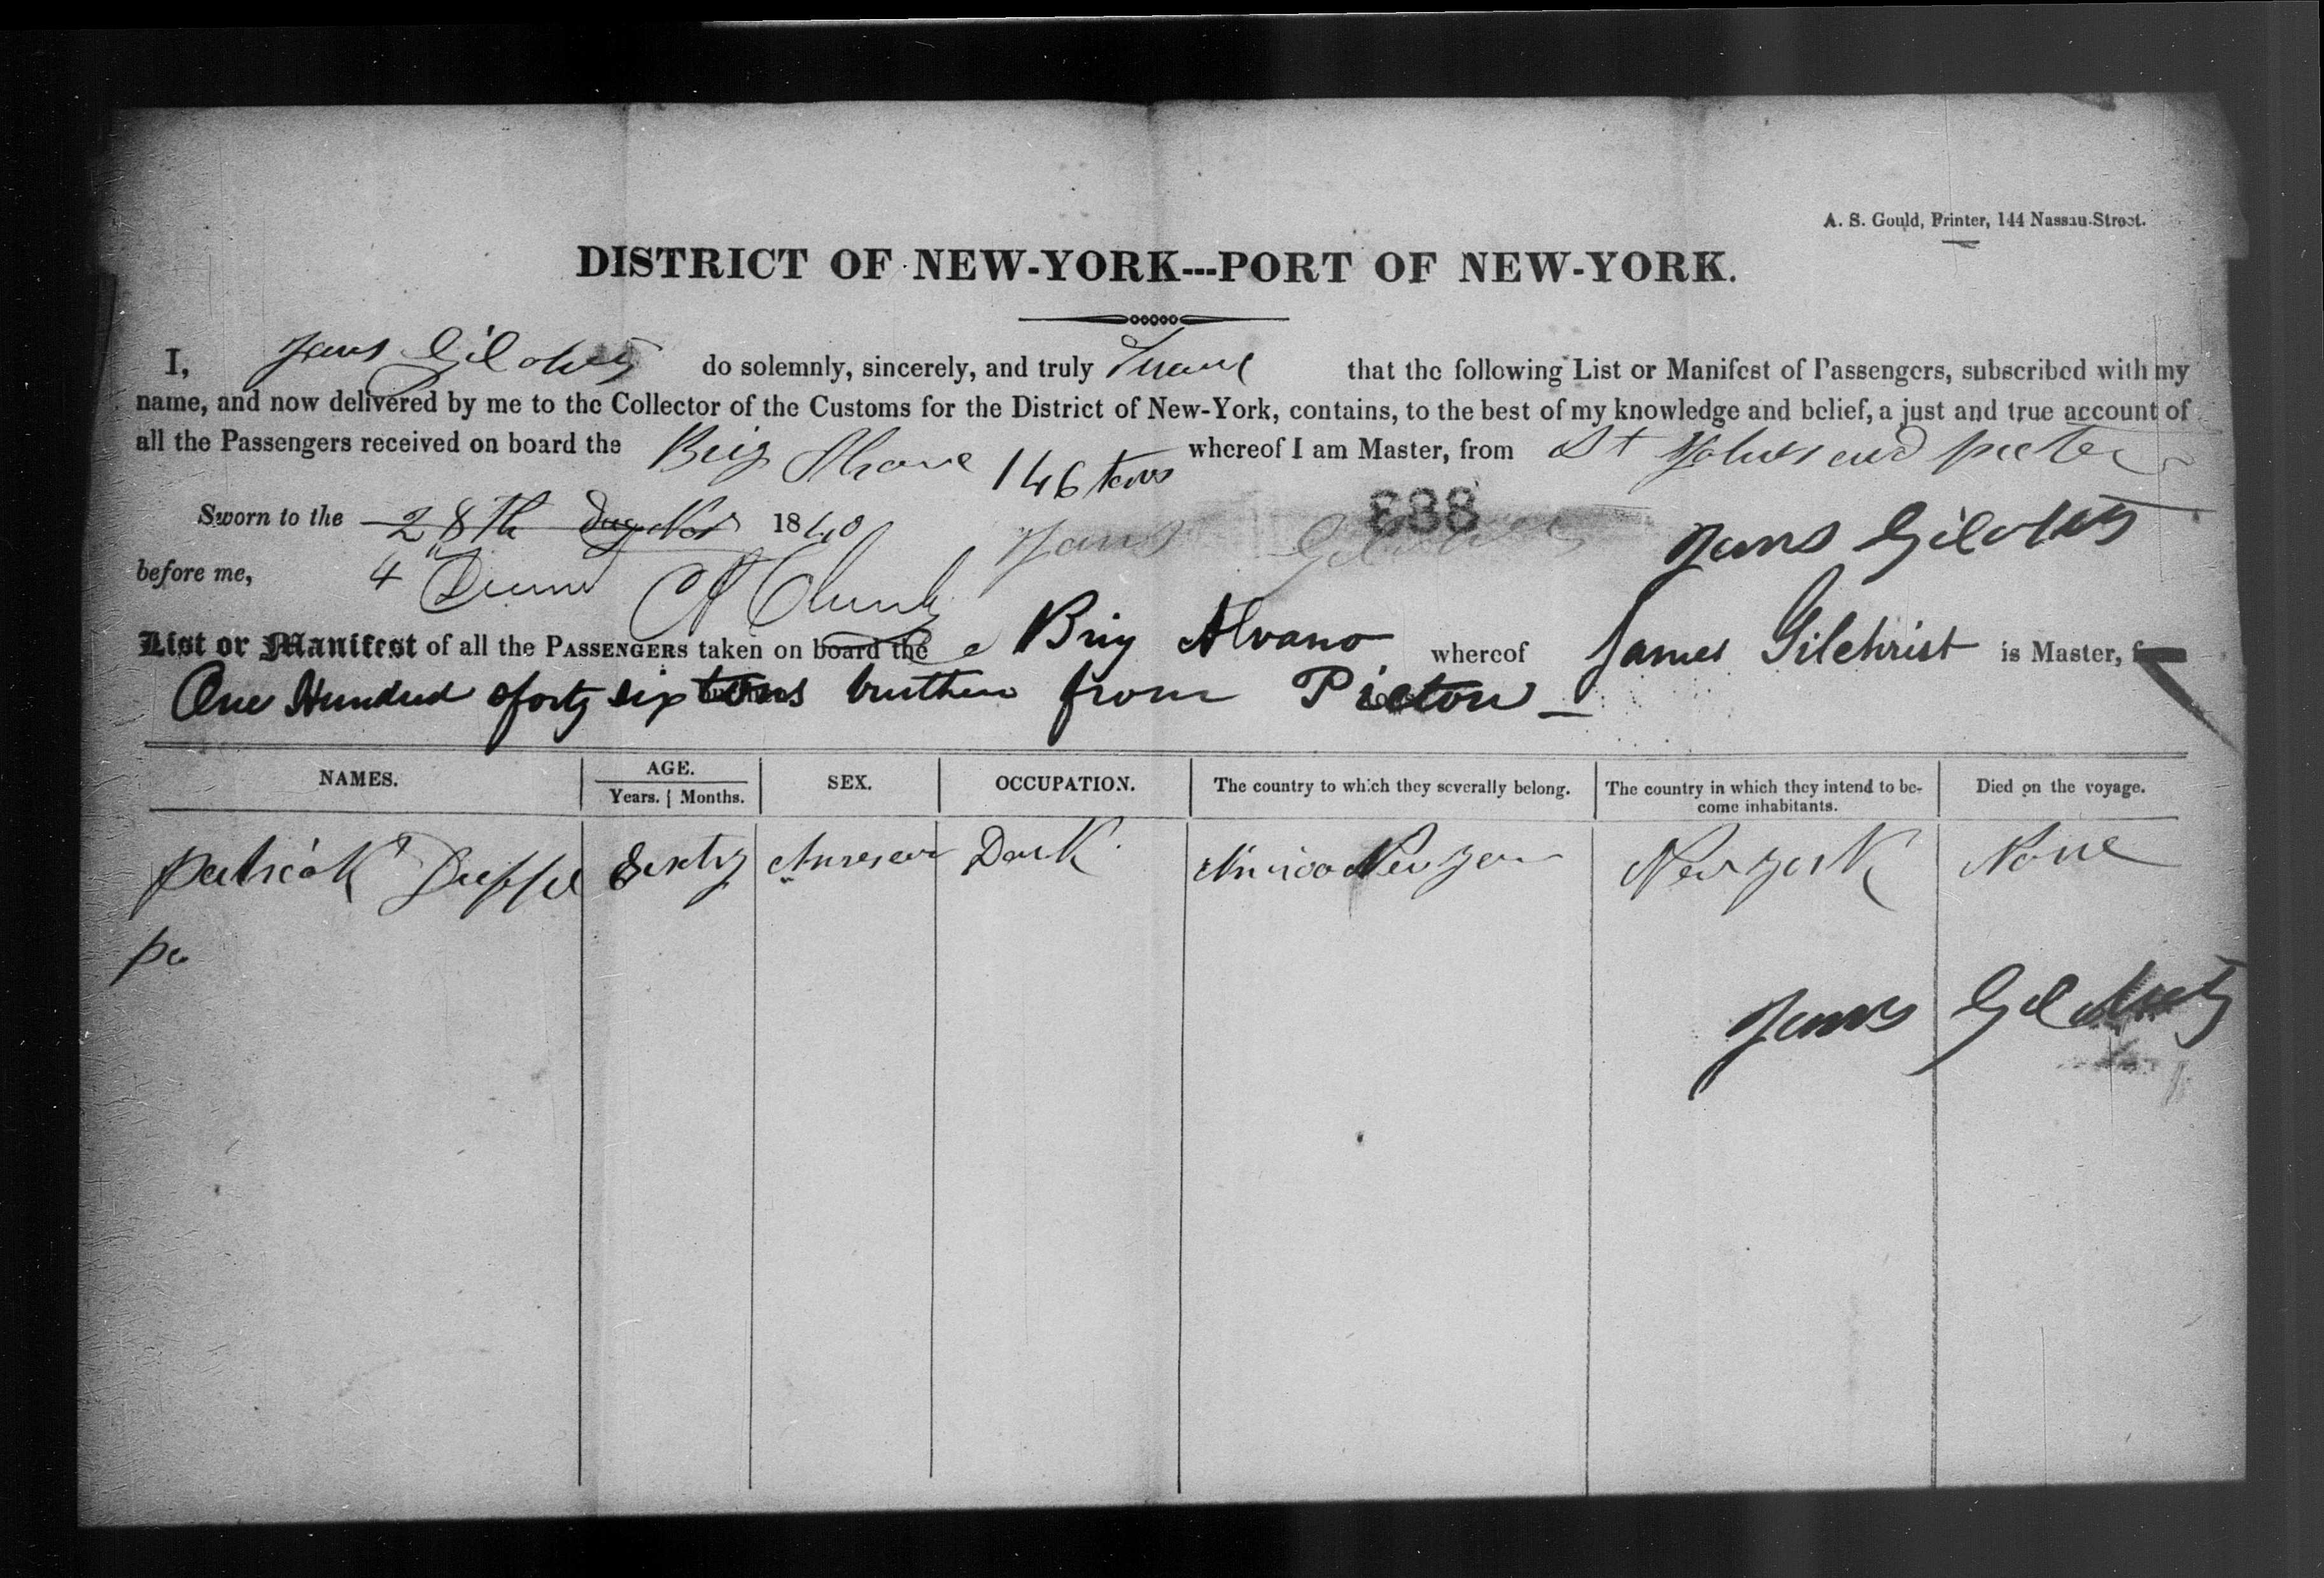 A. S. Gould, Printer, 144 Nassau-Street.
DISTRICT OF NEW-YORK---PORT OF NEW-YORK.
I, do solemnly, sincerely, and truly that the following List or Manifest of Passengers, subscribed with my
name, and now delivered by me to the Collector of the Customs for the District of New-York, contains, to the best of my knowledge and belief, a just and true account of
all the Passengers received on board the Brig 146 tons whereof I am Master, from St
Sworn to the 28th day Nov 1840
888
before me,
List or Manifest of all the PASSENGERS taken on board the Brig Alvano whereof James Gilchrist is Master,
One Hundred & forty six tons burthen from Pictou
NAMES. AGE. SEX. OCCUPATION. The country to which they severally belong. The country in which they intend to be- Died on the voyage.
Years. Months. come inhabitants.
Patrick Sixty Dark New york None